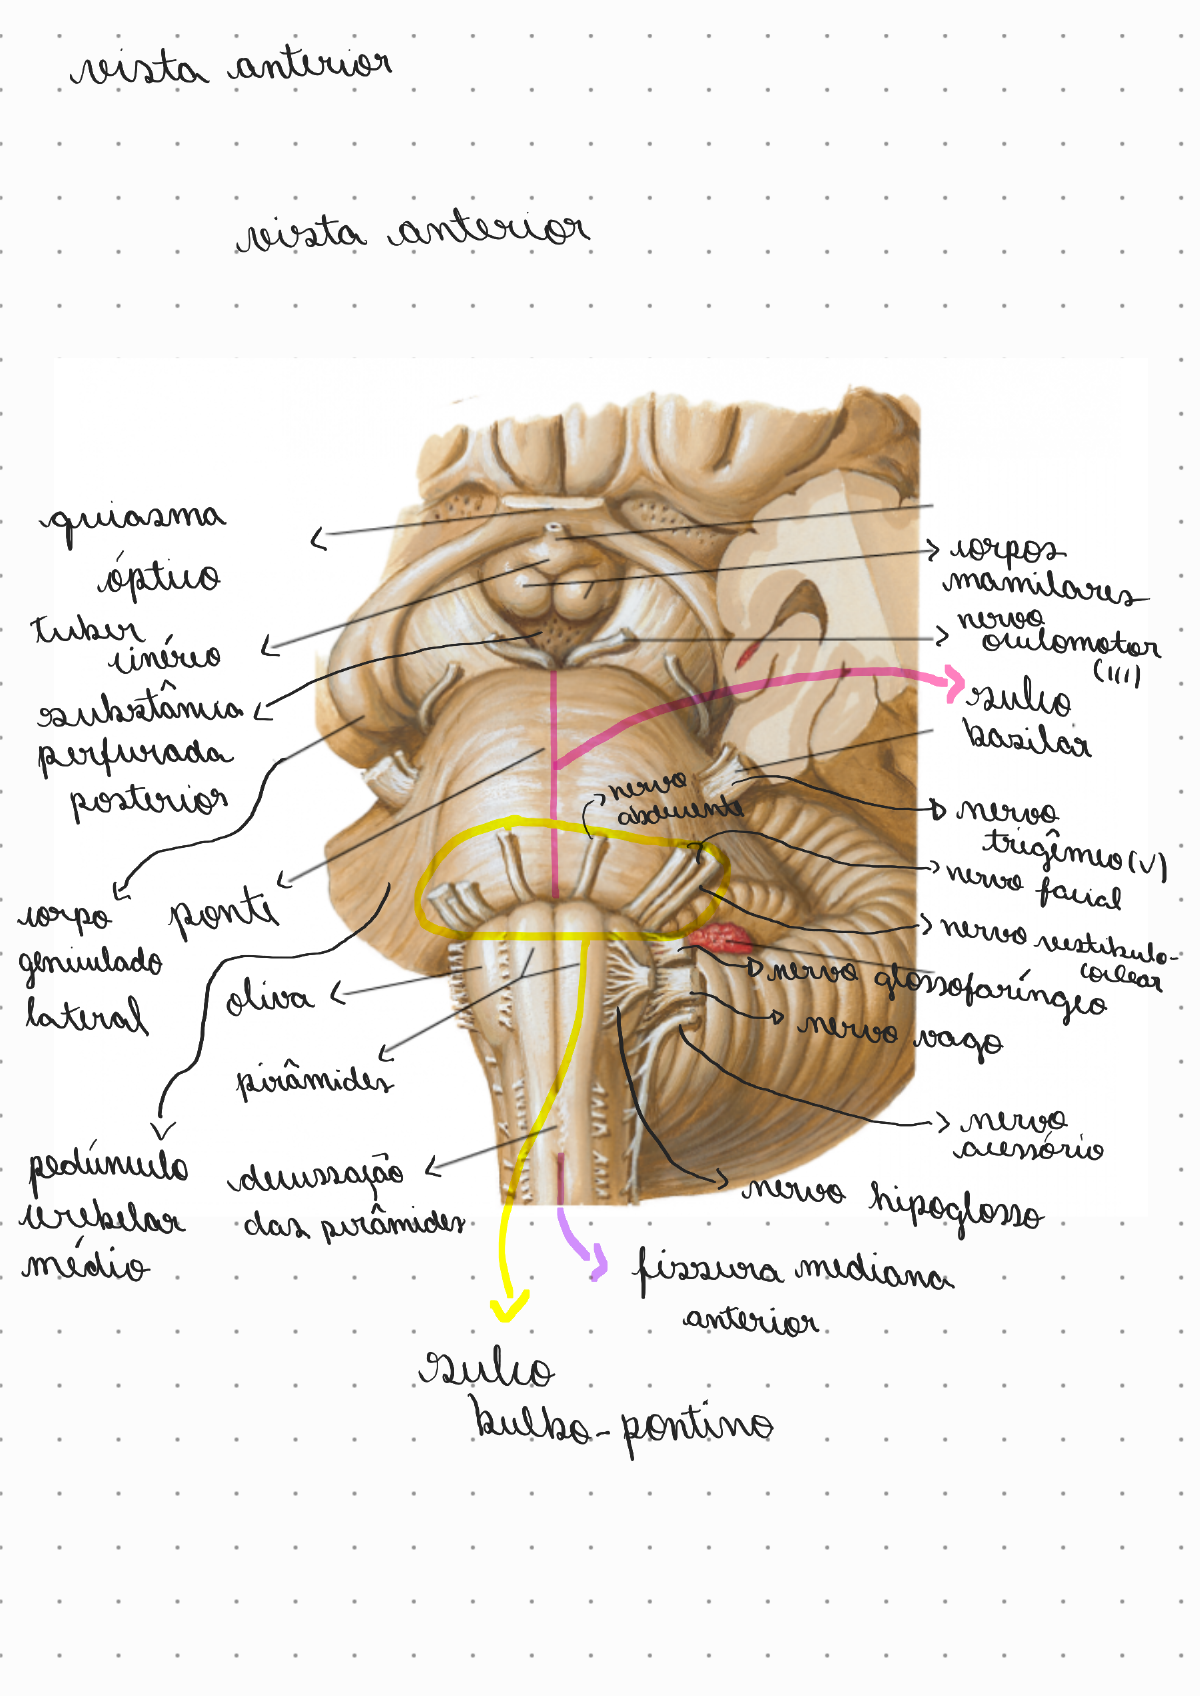 vista anterior
vista anterior
quiasma
óptico
tuber
cinéreo
substância
perfurada
posterior
corpo
geniculado
lateral
ponte
pedúnculo
cerebelar
médio
oliva
pirâmides
decussação
das pirâmides
corpos
mamilares
nervo
oculomotor
(III)
sulco
basilar
nervo
abducente
nervo
trigêmeo (V)
nervo facial
nervo vestíbulo-
coclear
nervo glossofaríngeo
nervo vago
nervo
acessório
nervo hipoglosso
fissura mediana
anterior
sulco
bulbo-pontino